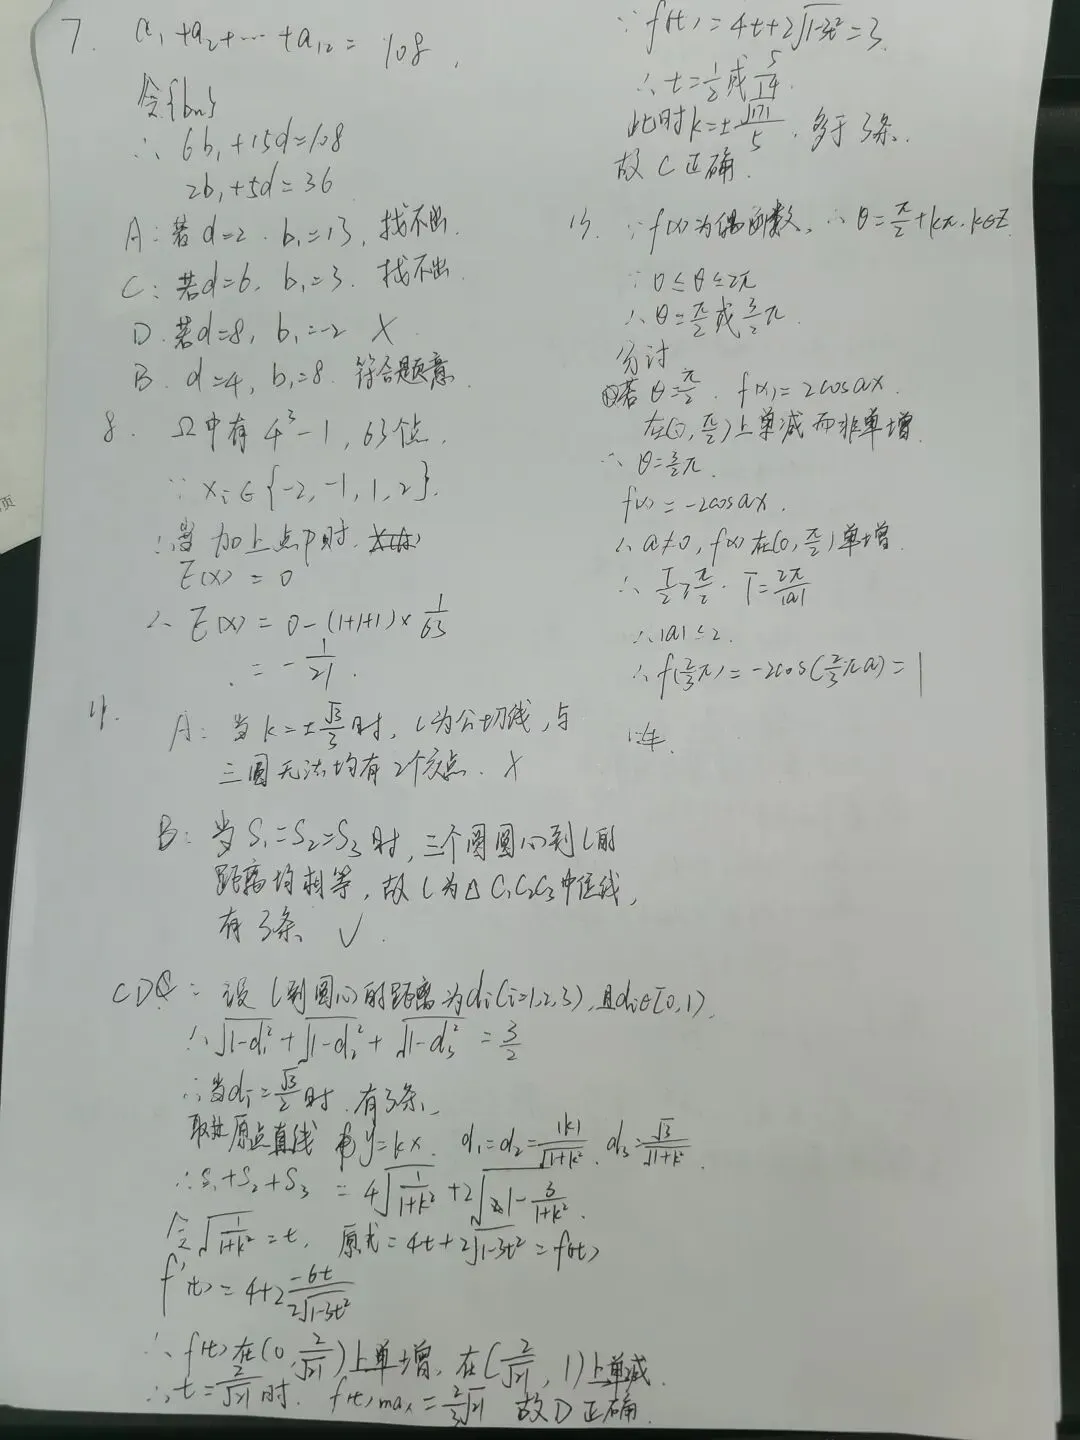 7. a₁+a₂+…+a₁₂= 108,
令{bn}
∴ 6b₁+15d=108
2b₁+5d=36
A:若d=2. b₁=13, 找不出.
C:若d=6, b₁=3. 找不出.
D.若d=8, b₁=-2 X
B. d=4, b₁=8. 符合题意.
8. Ω中有4³-1, 63个点.
∵ xᵢ∈{-2,-1,1,2}.
∴当加上点P时.
E(X) = 0
∴ E(X) = 0-(1+1+1)×1/63
= -1/21.
11.
A: 当k=±√3/3时, l为公切线, 与
三圆无法均有2个交点. X
B: 当S₁=S₂=S₃时, 三个圆圆心到l的
距离均相等, 故l为△C₁C₂C₃中位线,
有3条 √.
CD: 设l到圆心的距离为dᵢ(i=1,2,3), 且dᵢ∈[0,1).
∴√1-d₁²+√1-d₂²+√1-d₃² = 3/2
∴当dᵢ=√3/2时, 有3条,
取过原点直线 y=kx. d₁=d₂=|k|/√1+k², d₃=√3/√1+k².
∴S₁+S₂+S₃ = 4√1/1+k² +2√1-3/1+k².
令√1/1+k²=t, 原式=4t+2√1-3t²=f(t)
f'(t)=4+2 -6t/2√1-3t²
∴f(t)在(0,2/√21)上单增, 在(2/√21,1)上单减.
∴t=2/√21时. f(t)max=2/3√21 故D正确.
∵f(t)=4t+2√1-3t²=3.
∴t=1/2或5/14.
此时k=±√171/5, 多于3条.
故C正确.
13. ∵f(x)为偶函数, ∴θ=π/2+kπ, k∈Z
∵0≤θ≤2π
∴θ=π/2或3/2π.
分讨
①若θ=π/2. f(x)=2cosax.
在(0,π/2)上单减而非单增.
∴θ=3/2π.
f(x)=-2cosax.
∴a≠0, f(x)在(0,π/2)单增.
∴T/2≥π/2. T=2π/|a|
∴|a|≤2.
∴f(2/3π)=-2cos(2/3πa)=1